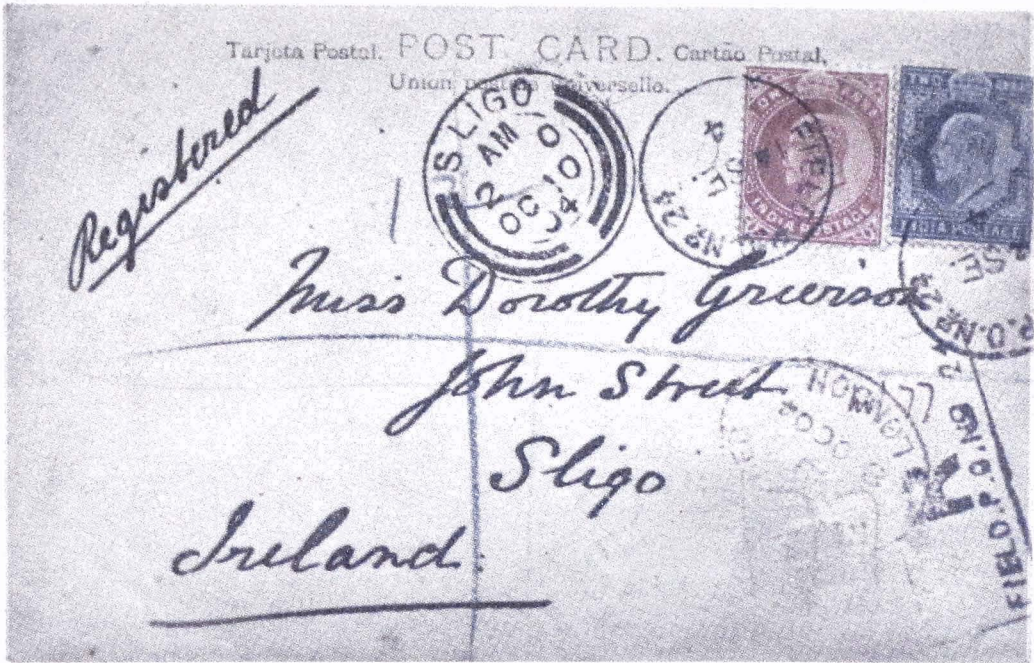 Tarjeta Postal. POST CARD. Cartão Postal.
Union postale universelle.
Registered
SLIGO
AM
10
2 OC
04
FIELD
No 24
SE.
4
INDIA POSTAGE
INDIA POSTAGE
SE.
P.O. No 24
Miss Dorothy Grierson
John Street
Sligo
Ireland.
LONDON
OC 04
R
FIELD.P.O.No 24